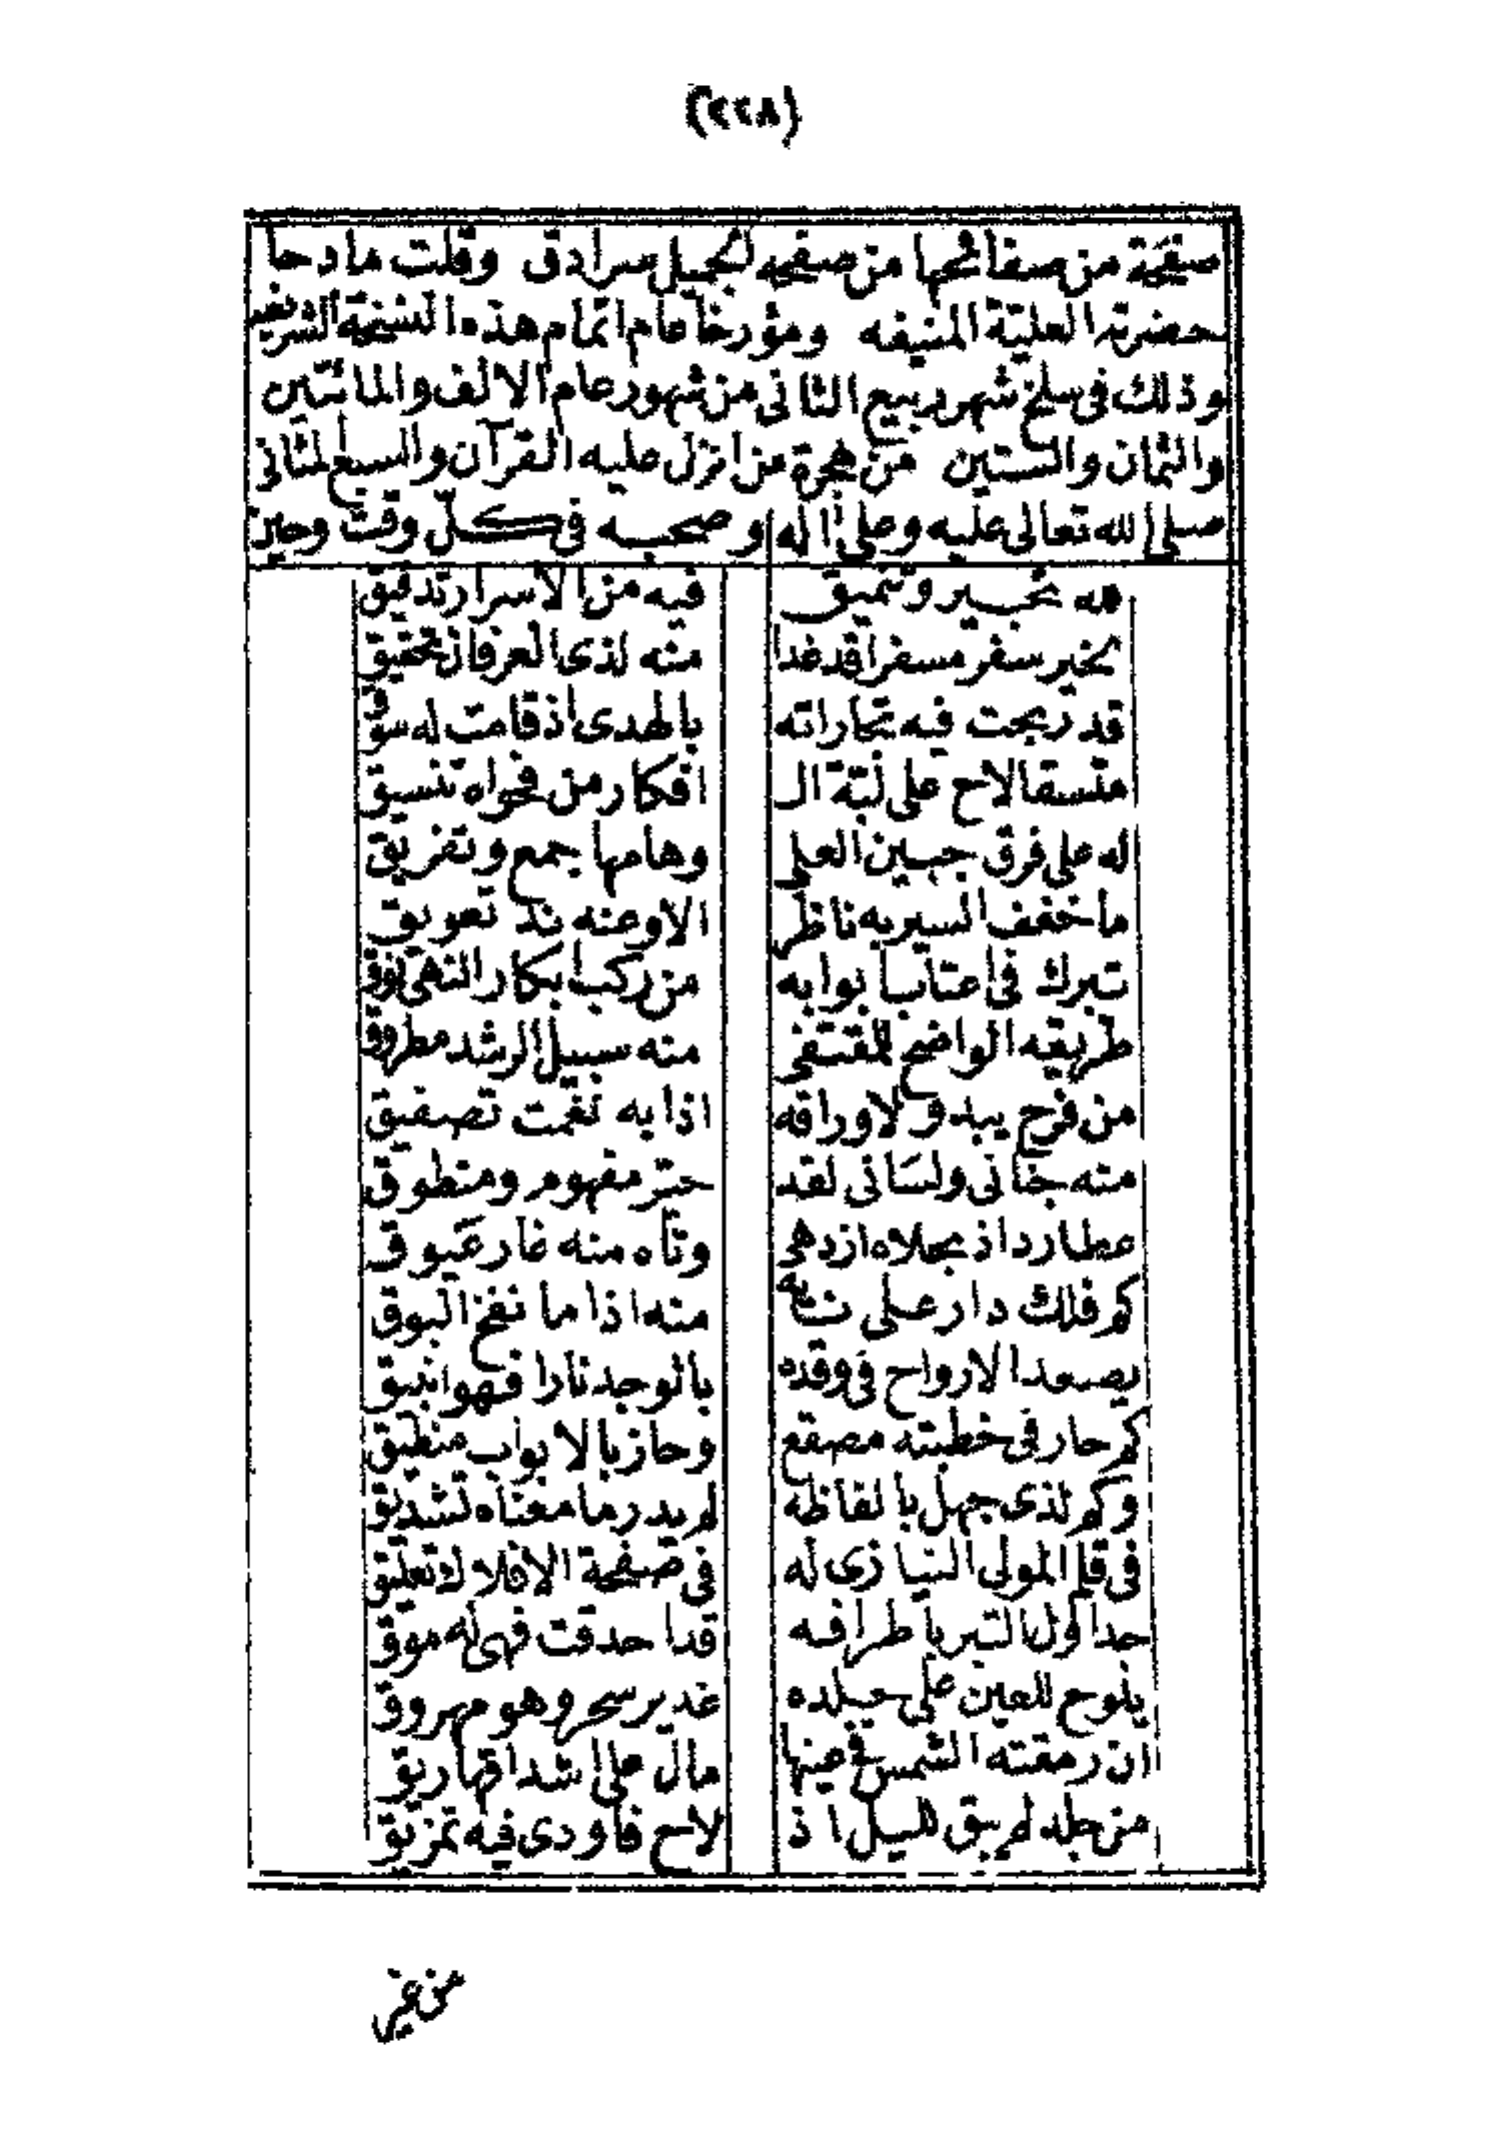 (٢٢٨)
صفحة من صفائحها من صفحه لجميل سرادق وقلت مادحا
حضرته العليّة المنيفه ومؤرخا عام اتمام هذه النسخة الشريفه
وذلك فى سلخ شهر ربيع الثانى من شهور عام الالف والمائتين
والثمان والستين من هجرة من انزل عليه القرآن والسبع المثانى
صلى الله تعالى عليه وعلى اله وصحبه فى كلّ وقت وحين
لله تحبير وتنميق فيه من الاسرار تدقيق
بخير سفر مسفرا قد غدا منه لذى العرفان تحقيق
قد ربحت فيه تجاراته بالهدى اذ قامت له سوق
متسقا لاح على لبّة ال افكار من فحواه تنسيق
له على فرق جبين العلى وهامها جمع وتفريق
ما خفف السير به ناظر الا وعنه ند تعويق
تبرك فى اعتاب ابوابه من ركب ابكار النهى نوق
طريقه الواضح للمقتفى منه سبيل الرشد مطروق
من فرح يبدو لاوراقه اذا به نغمت تصفيق
منه جنانى ولسانى لقد حيّر مفهوم ومنطوق
عطارد اذ بحلاه ازدهى وتاه منه غار عيوق
كم فلك دار على بابه منه اذا ما نفخ البوق
يصعد الارواح فى وقده بالوجد نارا فهو انبيق
كم حار فى خطبته مصقع وحاز بالابواب منطيق
وكم لذى جهل بالفاظه لم يدر ما معناه تشديق
فى قلم المولى النيازى له فى صفحة الافلاك تعليق
جداول التبر باطرافه قد احدقت فهى له موق
يلوح للعين على جلده غدير سحر وهو مهروق
ان رمقته الشمس فى عينها مال على اشداقها ريق
من حله لم يبق لليل اذ لاح فاودى فيه تمزيق
من غير